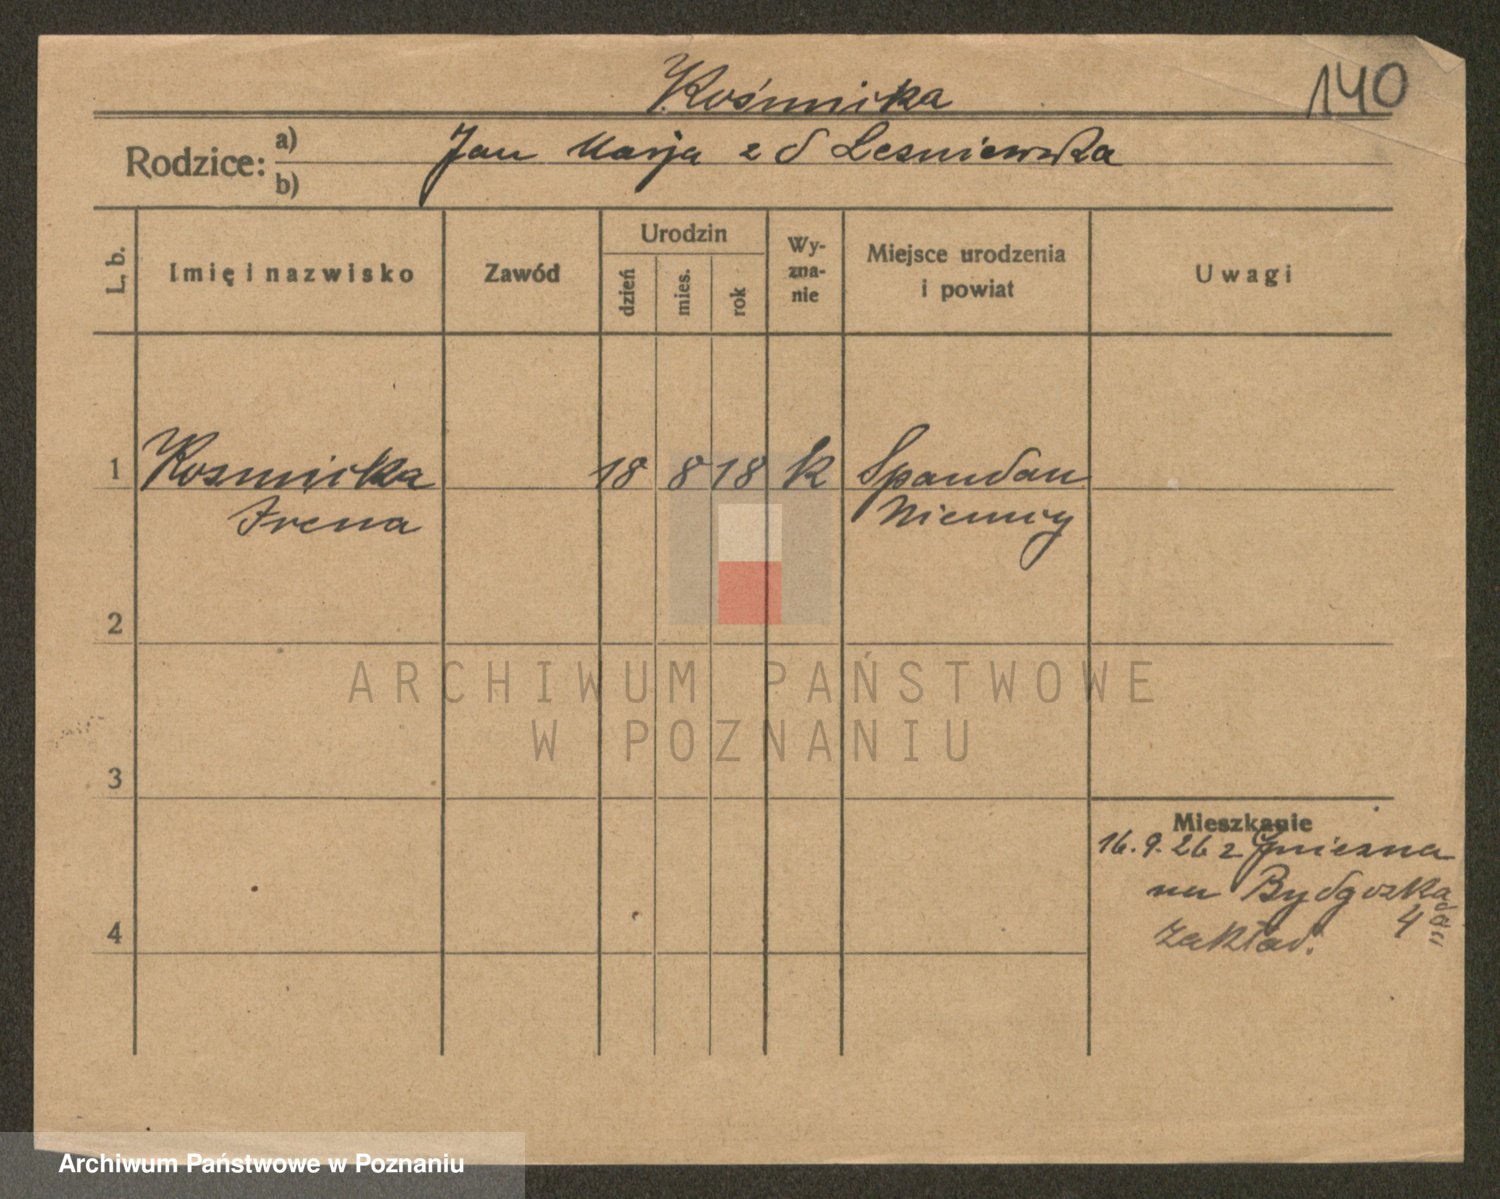 Kośmicka
140
Rodzice: a) Jan Marja z d Lesniewska
b)
L. b.
Imię i nazwisko
Zawód
Urodzin
dzień
mies.
rok
Wy-
zna-
nie
Miejsce urodzenia
i powiat
Uwagi
1 Kosmicka 18 8 18 k Spandau
Irena Niemcy
2
3
4
Mieszkanie
16.9.26 z Gniezna
na Bydgoszka
4
zakład.
ARCHIWUM PAŃSTWOWE
W POZNANIU
Archiwum Państwowe w Poznaniu